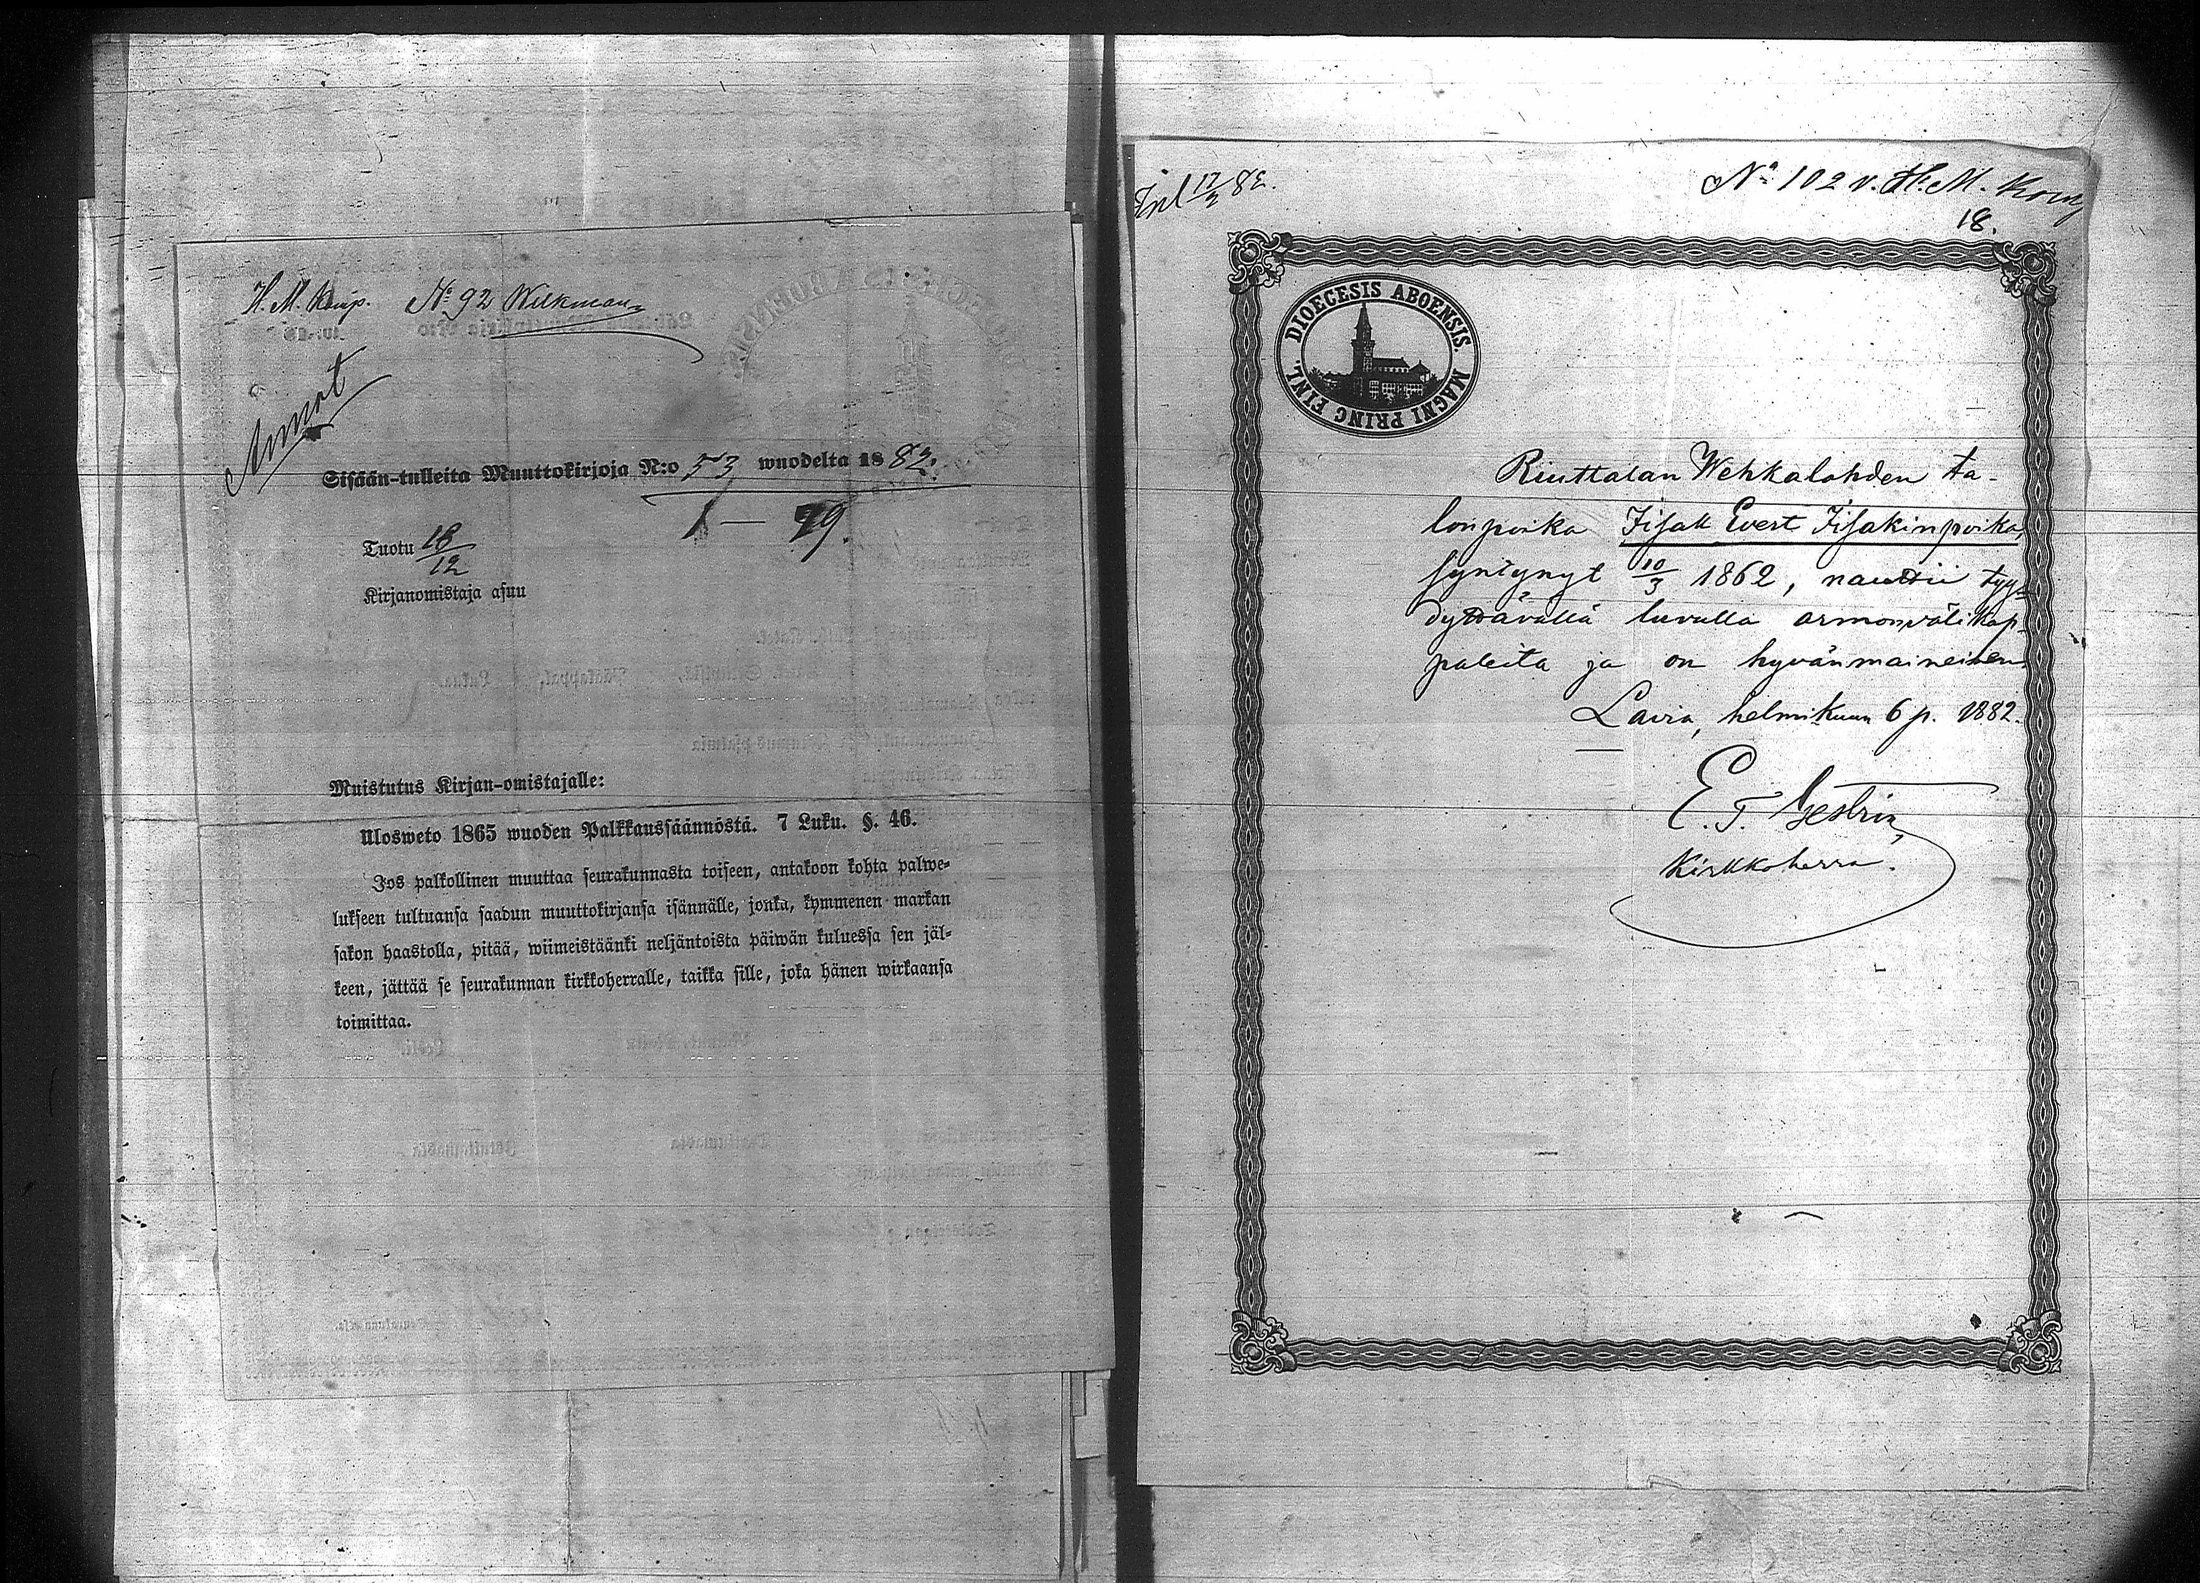 H. M. Kump. No 92 Wilkman
Annot
Sisään-tulleita Muuttokirjoja N:o 53 wuodelta 1882.
1 — 79.
Tuotu 18/12
Kirjanomistaja asuu
Muistutus Kirjan-omistajalle:
Ulosweto 1865 wuoden Palkkaussäännöstä. 7 Luku. §. 46.
Jos palkollinen muuttaa seurakunnasta toiseen, antakoon kohta palwe-
lukseen tultuansa saadun muuttokirjansa isännälle, jonka, kymmenen markan
sakon haastolla, pitää, wiimeistäänki neljäntoista päiwän kuluessa sen jäl-
keen, jättää se seurakunnan kirkkoherralle, taikka sille, joka hänen wirkaansa
toimittaa.
Inl 17/2 82.
No 102 v. H. M. Komp
18.
DIOECESIS ABOENSIS. MAGNI PRINC FINL.
Riuttalan Wehkalahden ta-
lonpoika Iisak Evert Iisakinpoika,
syntynyt 10/3 1862, nauttii tyy-
dyttävällä luvulla armonvälikap-
paleita ja on hyvänmaineinen
Lavia, helmikuun 6 p. 1882.
E. T. Gestrin,
Kirkkoherra.